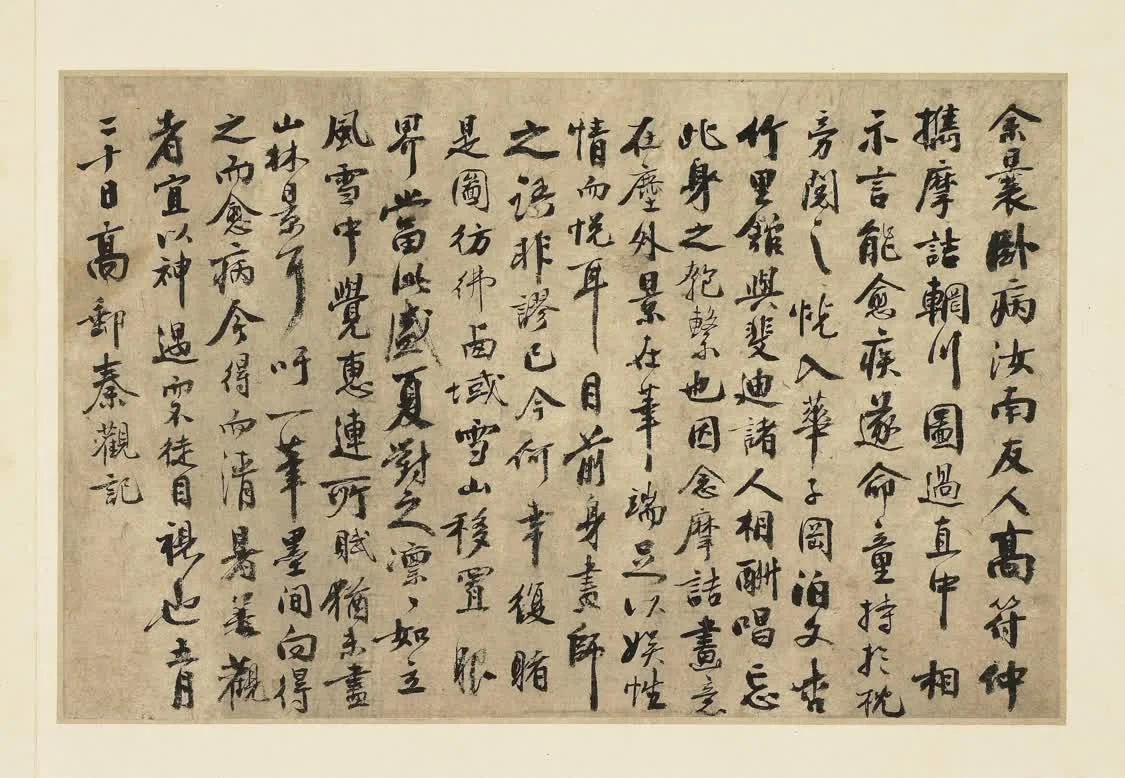 余曩臥病汝南友人高符仲
攜摩詰輞川圖過直中相
示言能愈疾遂命童持於枕
旁閱之恍入華子岡泊文杏
竹里館與斐迪諸人相酬唱忘
此身之匏繫也因念摩詰畫意
在塵外景在筆端足以娛性
情而悅耳目前身畫師
之語非謬已今何幸復睹
是圖彷彿西域雪山移置眼
界當此盛夏對之凛〻如立
風雪中覺惠連所賦猶未盡
山林景耳吁一筆墨間向得
之而愈病今得而清暑善觀
者宜以神遇而不徒目視也五月
二十日高郵秦觀記